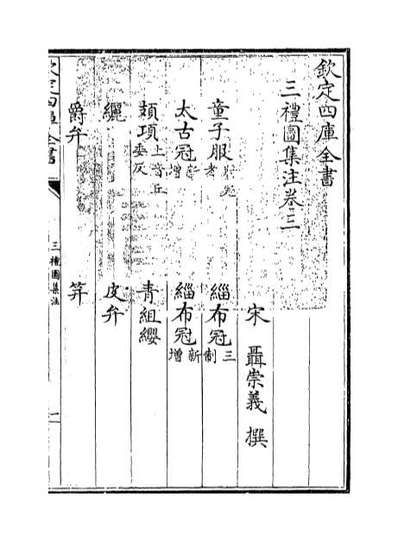 欽定四庫全書
三禮圖集注卷三
宋 聶崇義 撰
童子服 緇布冠三制
太古冠新增 緇布冠新增
頍項上音丘委反 青組纓
纚 皮弁
爵弁 笄
欽定四庫全書
三禮圖集注
一